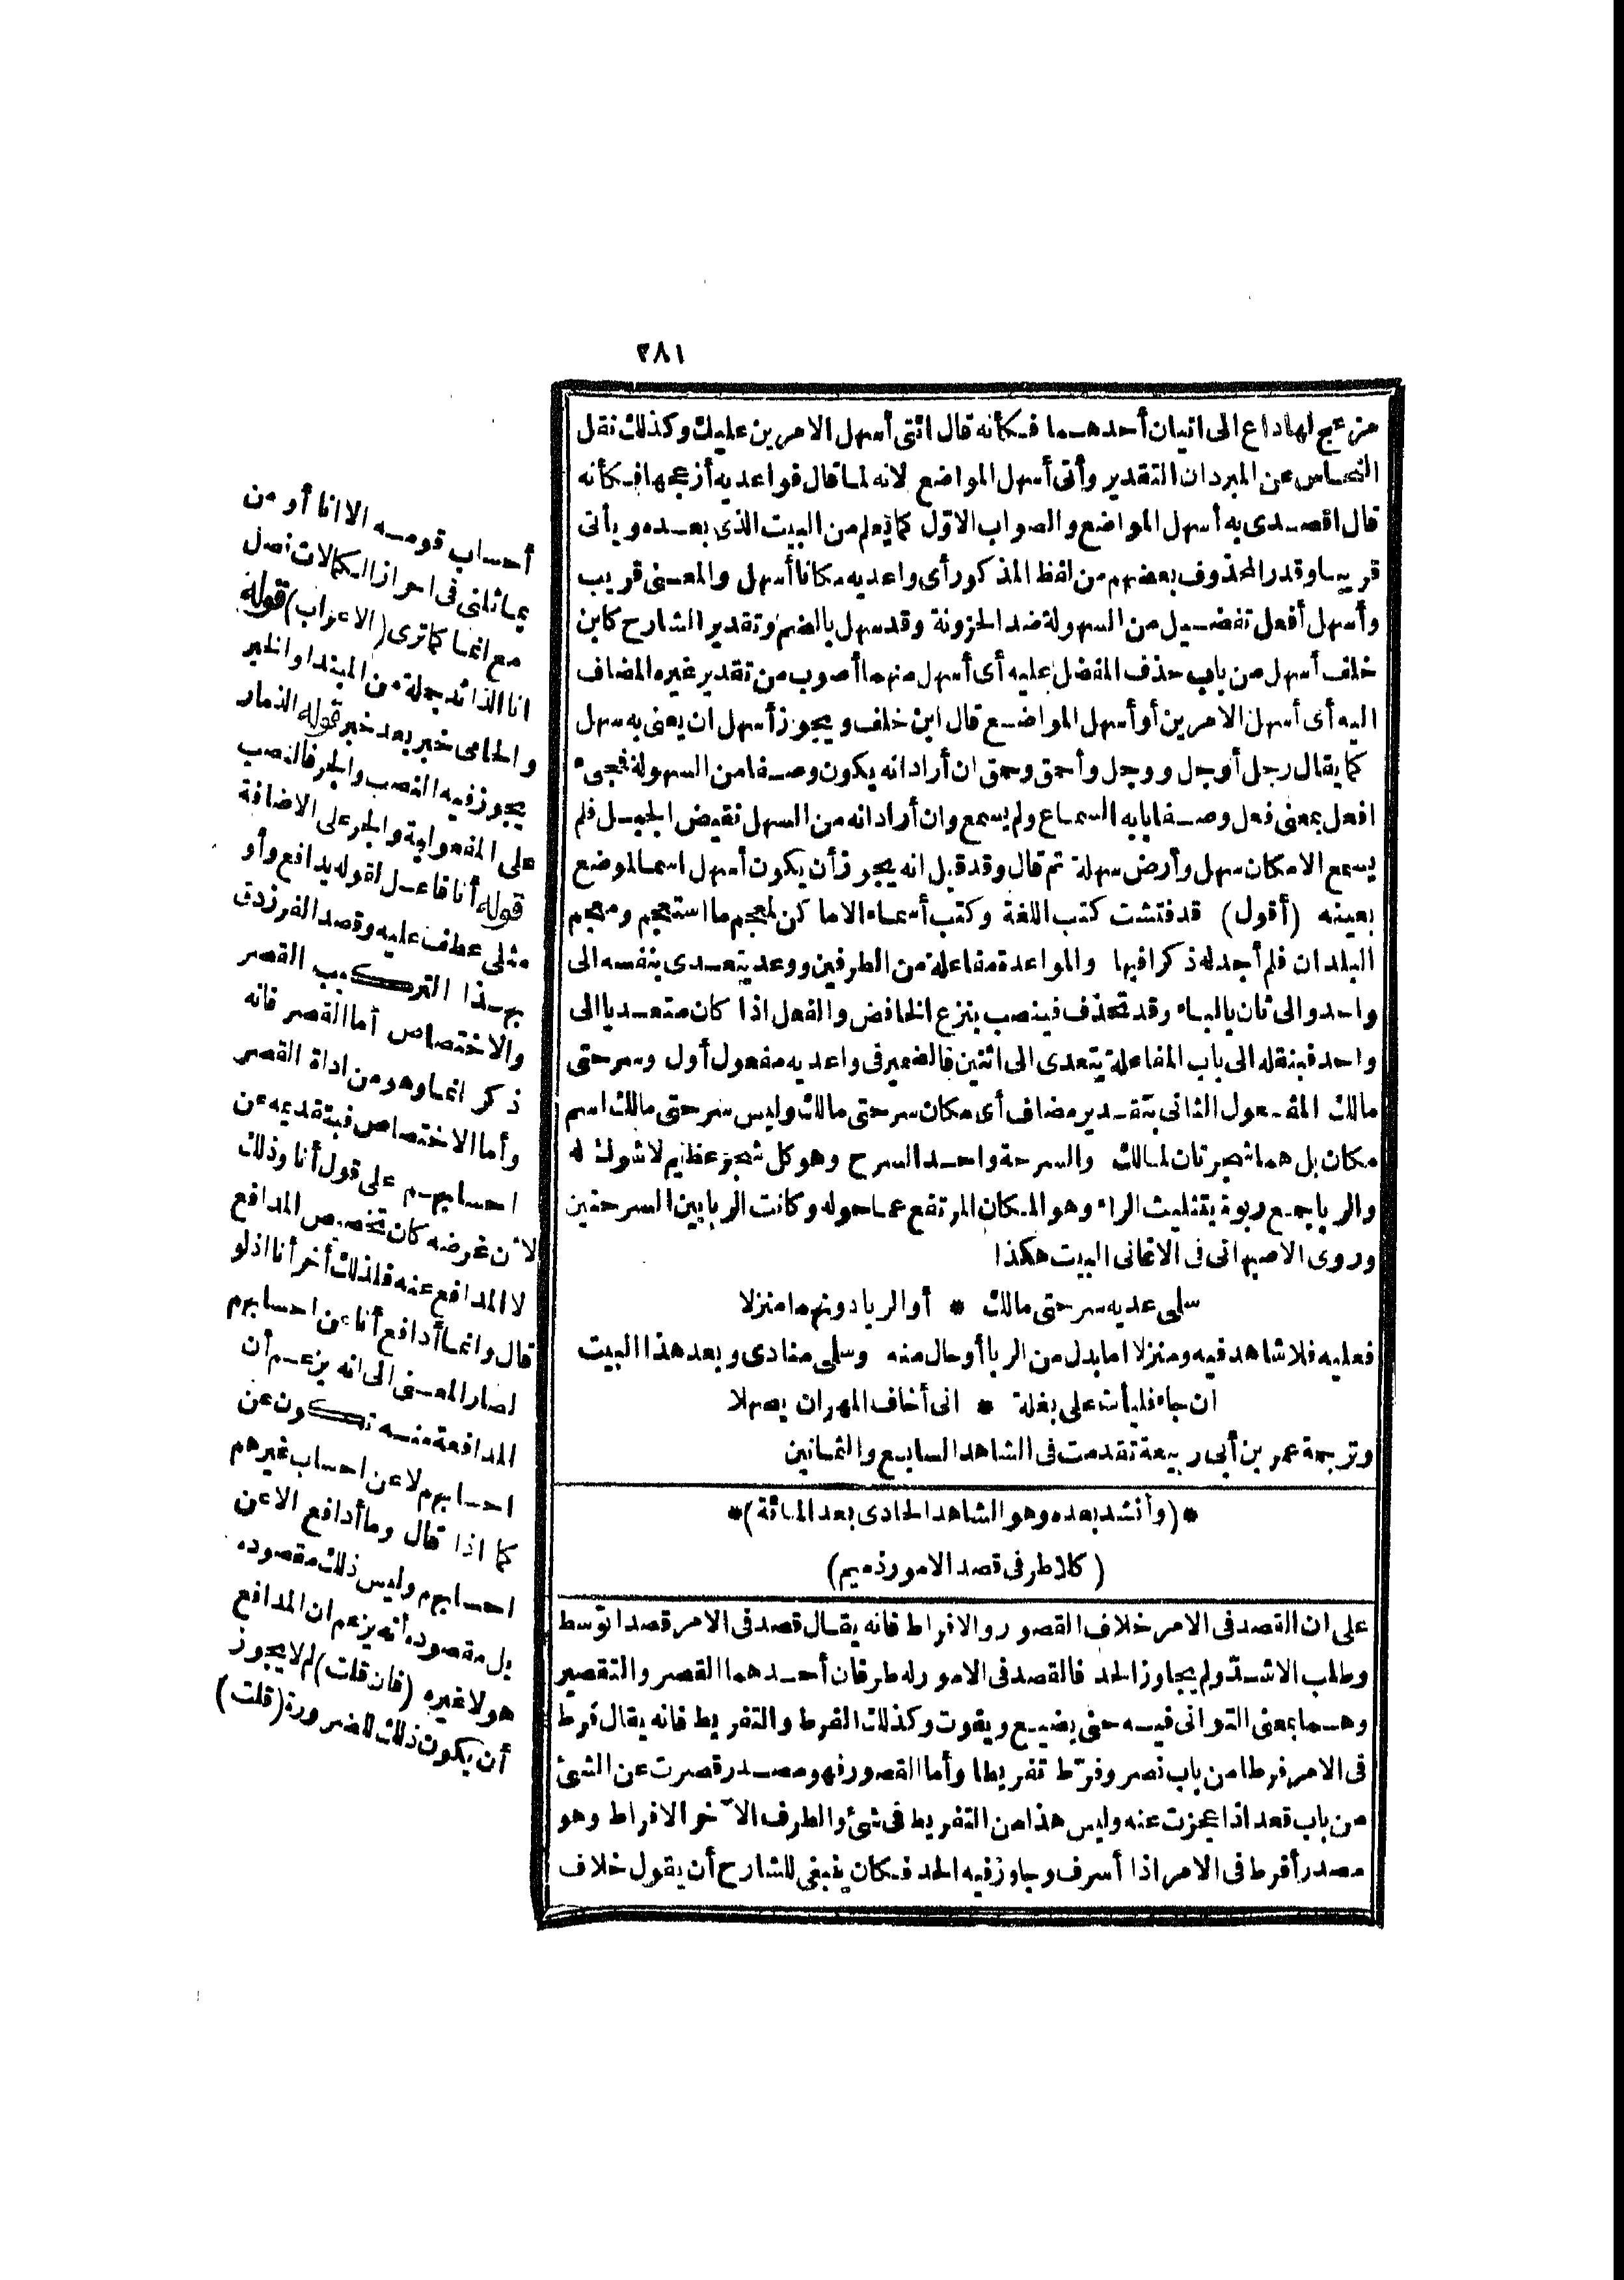 ٢٨١
مزعج لهاداع الى اتيان أحدهما فكأنه قال ائتى أسهل الامرين عليك وكذلك نقل
النحاس عن المبرد ان التقدير وأتى أسهل المواضع لانه لما قال فواعديه أزعجها فكأنه
قال اقصدى به أسهل المواضع والصواب الاوّل كما يعلم من البيت الذى بعده ويأتى
قريبا وقدر المحذوف بعضهم من لفظ المذكور أى واعديه مكانا أسهل والمعنى قريب
وأسهل أفعل تفضيل من السهولة ضد الحزونة وقد سهل بالضم وتقدير الشارح كابن
خلف أسهل من باب حذف المفضل عليه أى أسهل منهما أصوب من تقدير غيره المضاف
اليه أى أسهل الامرين أو أسهل المواضع قال ابن خلف ويجوز أسهل ان يعنى به سهل
كما يقال رجل أوجل ووجل وأحمق وحمق ان أراد انه يكون وصفا من السهولة فجىء
افعل بمعنى فعل وصفا بابه السماع ولم يسمع وان أراد انه من السهل نقيض الجبل فلم
يسمع الا مكان سهل وأرض سهلة ثم قال وقد قيل انه يجوز أن يكون أسهل اسما لموضع
بعينه (أقول) قد فتشت كتب اللغة وكتب أسماء الاماكن لمعجم ما استعجم ومعجم
البلدان فلم أجد له ذكرا فيها والمواعدة مفاعلة من الطرفين ووعد يتعدى بنفسه الى
واحد والى ثان بالباء وقد تحذف فينصب بنزع الخافض والفعل اذا كان متعديا الى
واحد فبنقله الى باب المفاعلة يتعدى الى اثنين فالضمير فى واعديه مفعول أول وسرحتى
مالك المفعول الثانى بتقدير مضاف أى مكان سرحتى مالك وليس سرحتى مالك اسم
مكان بل هما شجرتان لمالك والسرحة واحد السرح وهو كل شجر عظيم لاشوك له
والربا جمع ربوة بتثليث الراء وهو المكان المرتفع عما حوله وكانت الربا بين السرحتين
وروى الاصبهانى فى الاغانى البيت هكذا
سلمى عديه سرحتى مالك * أو الربا دونهما منزلا
فعليه فلا شاهد فيه ومنزلا اما بدل من الربا أو حال منه وسلمى منادى وبعد هذا البيت
ان جاء فليأت على بغلة * انى أخاف المهر ان يصهلا
وترجمة عمر بن أبى ربيعة تقدمت فى الشاهد السابع والثمانين
*(وأنشد بعده وهو الشاهد الحادى بعد المائة)*
(كلا طرفى قصد الامور ذميم)
على ان القصد فى الامر خلاف القصور والافراط فانه يقال قصد فى الامر قصدا توسط
وطلب الاشدّ ولم يجاوز الحد فالقصد فى الامور له طرفان أحدهما القصر والتقصير
وهما بمعنى التوانى فيه حتى يضيع ويفوت وكذلك الفرط والتفريط فانه يقال فرط
فى الامر فرطا من باب نصر وفرّط تفريطا وأما القصور فهو مصدر قصرت عن الشئ
من باب قعد اذا عجزت عنه وليس هذا من التفريط فى شئ والطرف الآخر الافراط وهو
مصدر أفرط فى الامر اذا أسرف وجاوز فيه الحد فكان ينبغى للشارح أن يقول خلاف
أحساب قومه الا انا أو من
يماثلنى فى احراز الكمالات نصل
مع انما كما ترى (الاعراب) قوله
انا الذائد جملة من المبتدا والخبر
والحامى خبر بعد خبر قوله الذمار
يجوز فيه النصب والجر فالنصب
على المفعولية والجر على الاضافة
قوله أنا فاعل لقوله يدافع وأو
مثلى عطف عليه وقصد الفرزدق
بهذا التركيب القصر
والاختصاص أما القصر فانه
ذكر انما وهو من اداة القصر
وأما الاختصاص فبتقديمه عن
احسابهم على قول أنا وذلك
لان غرضه كان تخصيص المدافع
لا المدافع عنه فلذلك أخر أنا اذ لو
قال وانما أدافع أنا عن احسابهم
لصار المعنى الى انه يزعم أن
المدافعة منه تكون عن
احسابهم لا عن احساب غيرهم
كما اذا قال وما أدافع الا عن
احسابهم وليس ذلك مقصوده
بل مقصوده أنه يزعم ان المدافع
هو لا غيره (فان قلت) لم لا يجوز
أن يكون ذلك للضرورة (قلت)